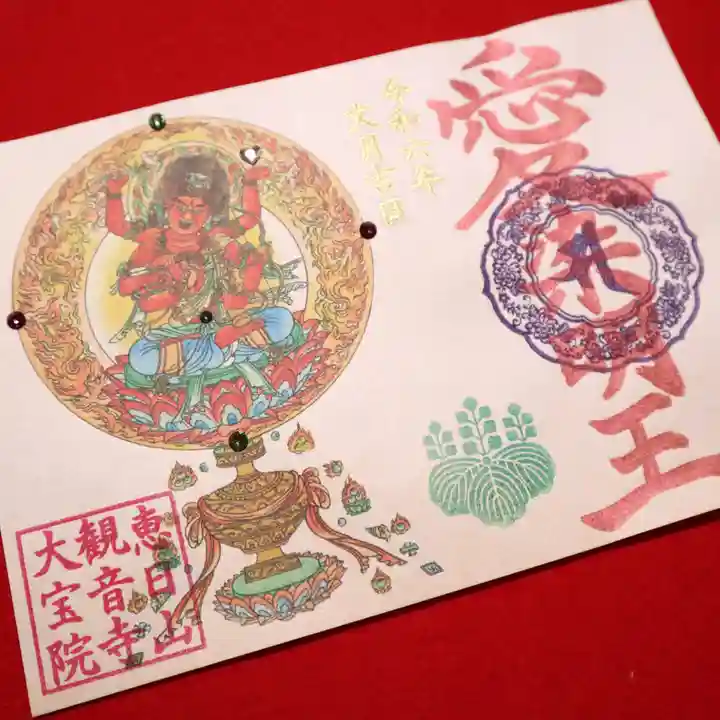 愛染明王
令和六年
月吉日
恵日山
観音寺
大宝院